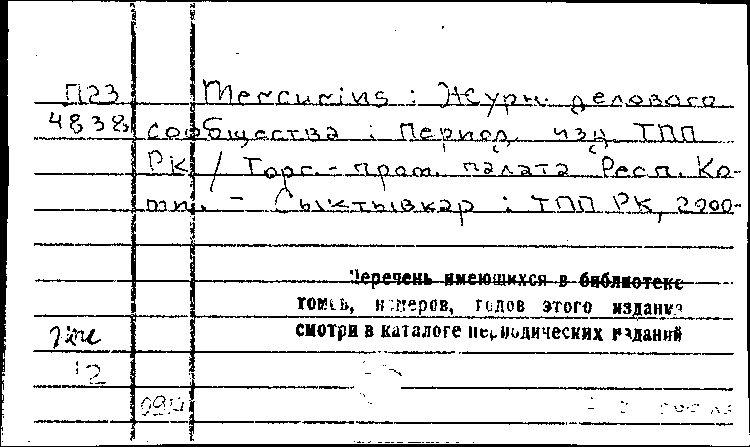 П23 Mercurius : Журн. делового
сообщества : Период. изд. ТПП
РК / Торг.-пром. палата Респ. Ко-
ми. - Сыктывкар : ТПП РК, 2000-
Перечень имеющихся в библиотеке
томов, номеров, годов этого издания
смотри в каталоге периодических изданий
12